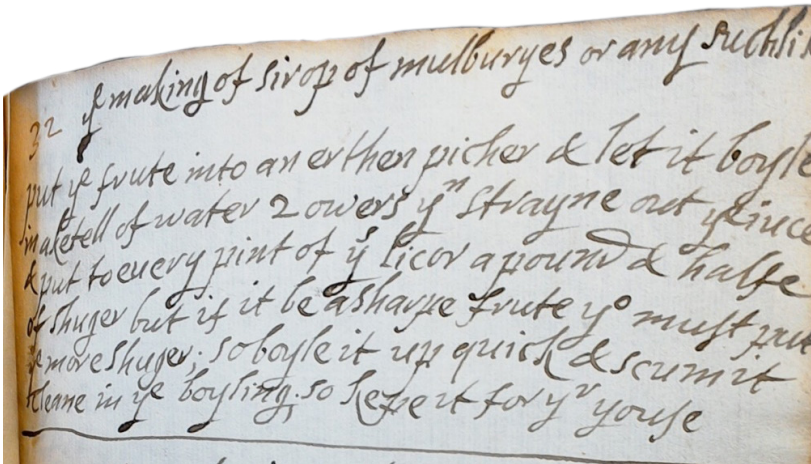 32 ye making of sirop of mulburyes or any suchli
put ye frute into an erthen picher & let it boyle
in a ketell of water 2 owers yn strayne out ye iuce
& put to euery pint of ys licor a pound & halfe
of shuger but if it be a sharpe frute yo must put
ye more shuger; so boyle it up quick & scum it
cleane in ye boyling; so kepe it for yr youse